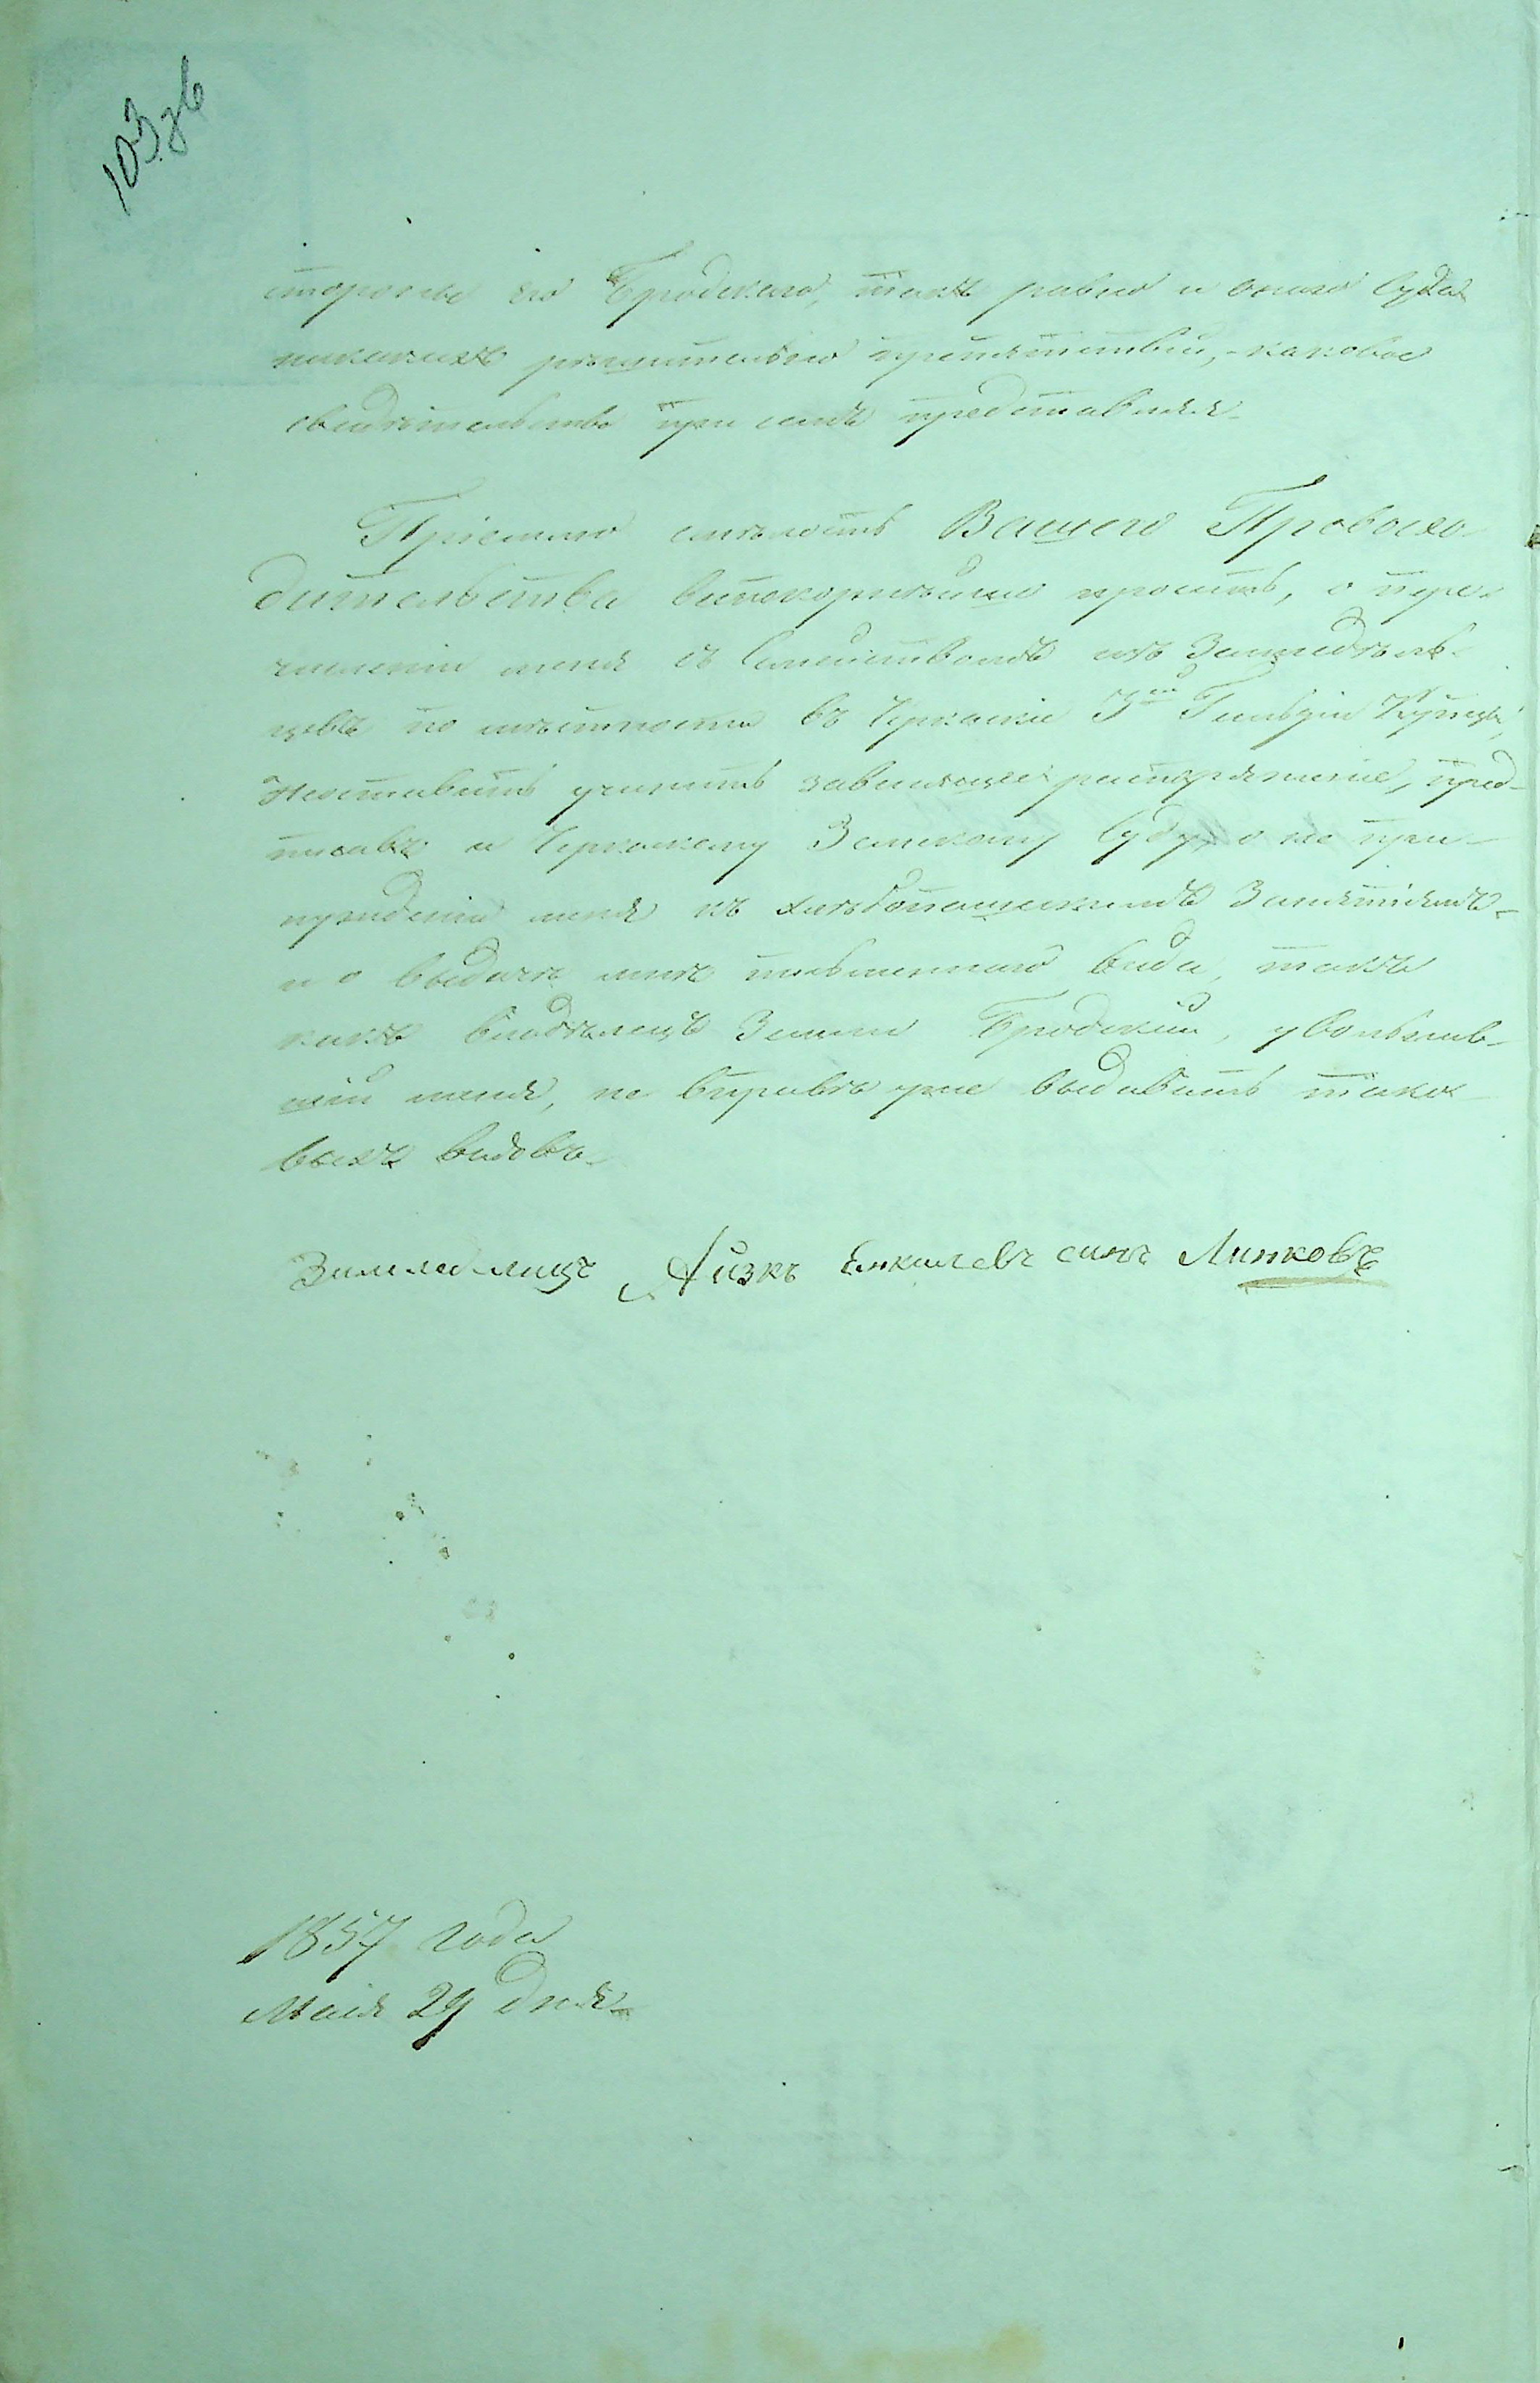 103 зв
стороны его Бродского, такъ равно и оного Суда
никакихъ рѣшительно препятствій, – каковое
свидѣтельство при семъ представляя –
Пріемлю смѣлость Вашего Превосхо-
дительства всепокорнѣйше просить, о пере-
численіи меня съ Семействомъ изъ Земледѣль-
цевъ по мѣстности въ Черкаскіе 3ей Гильдіи Купцы,
неоставить учинить зависящее распоряженіе, пред-
писавъ и Черкаскому Земскому Суду, о не при-
нужденіи меня къ хлѣбопашескимъ Занятіямъ –
и о выдачѣ мнѣ письменнаго вида, такъ
какъ владѣлецъ Земли Бродскій, уволив-
шій меня, не вправѣ уже выдавать тако-
выхъ видовъ –
Айзкъ Янкилевъ синъ Линковъ
1857 года
Маія 29 дня –